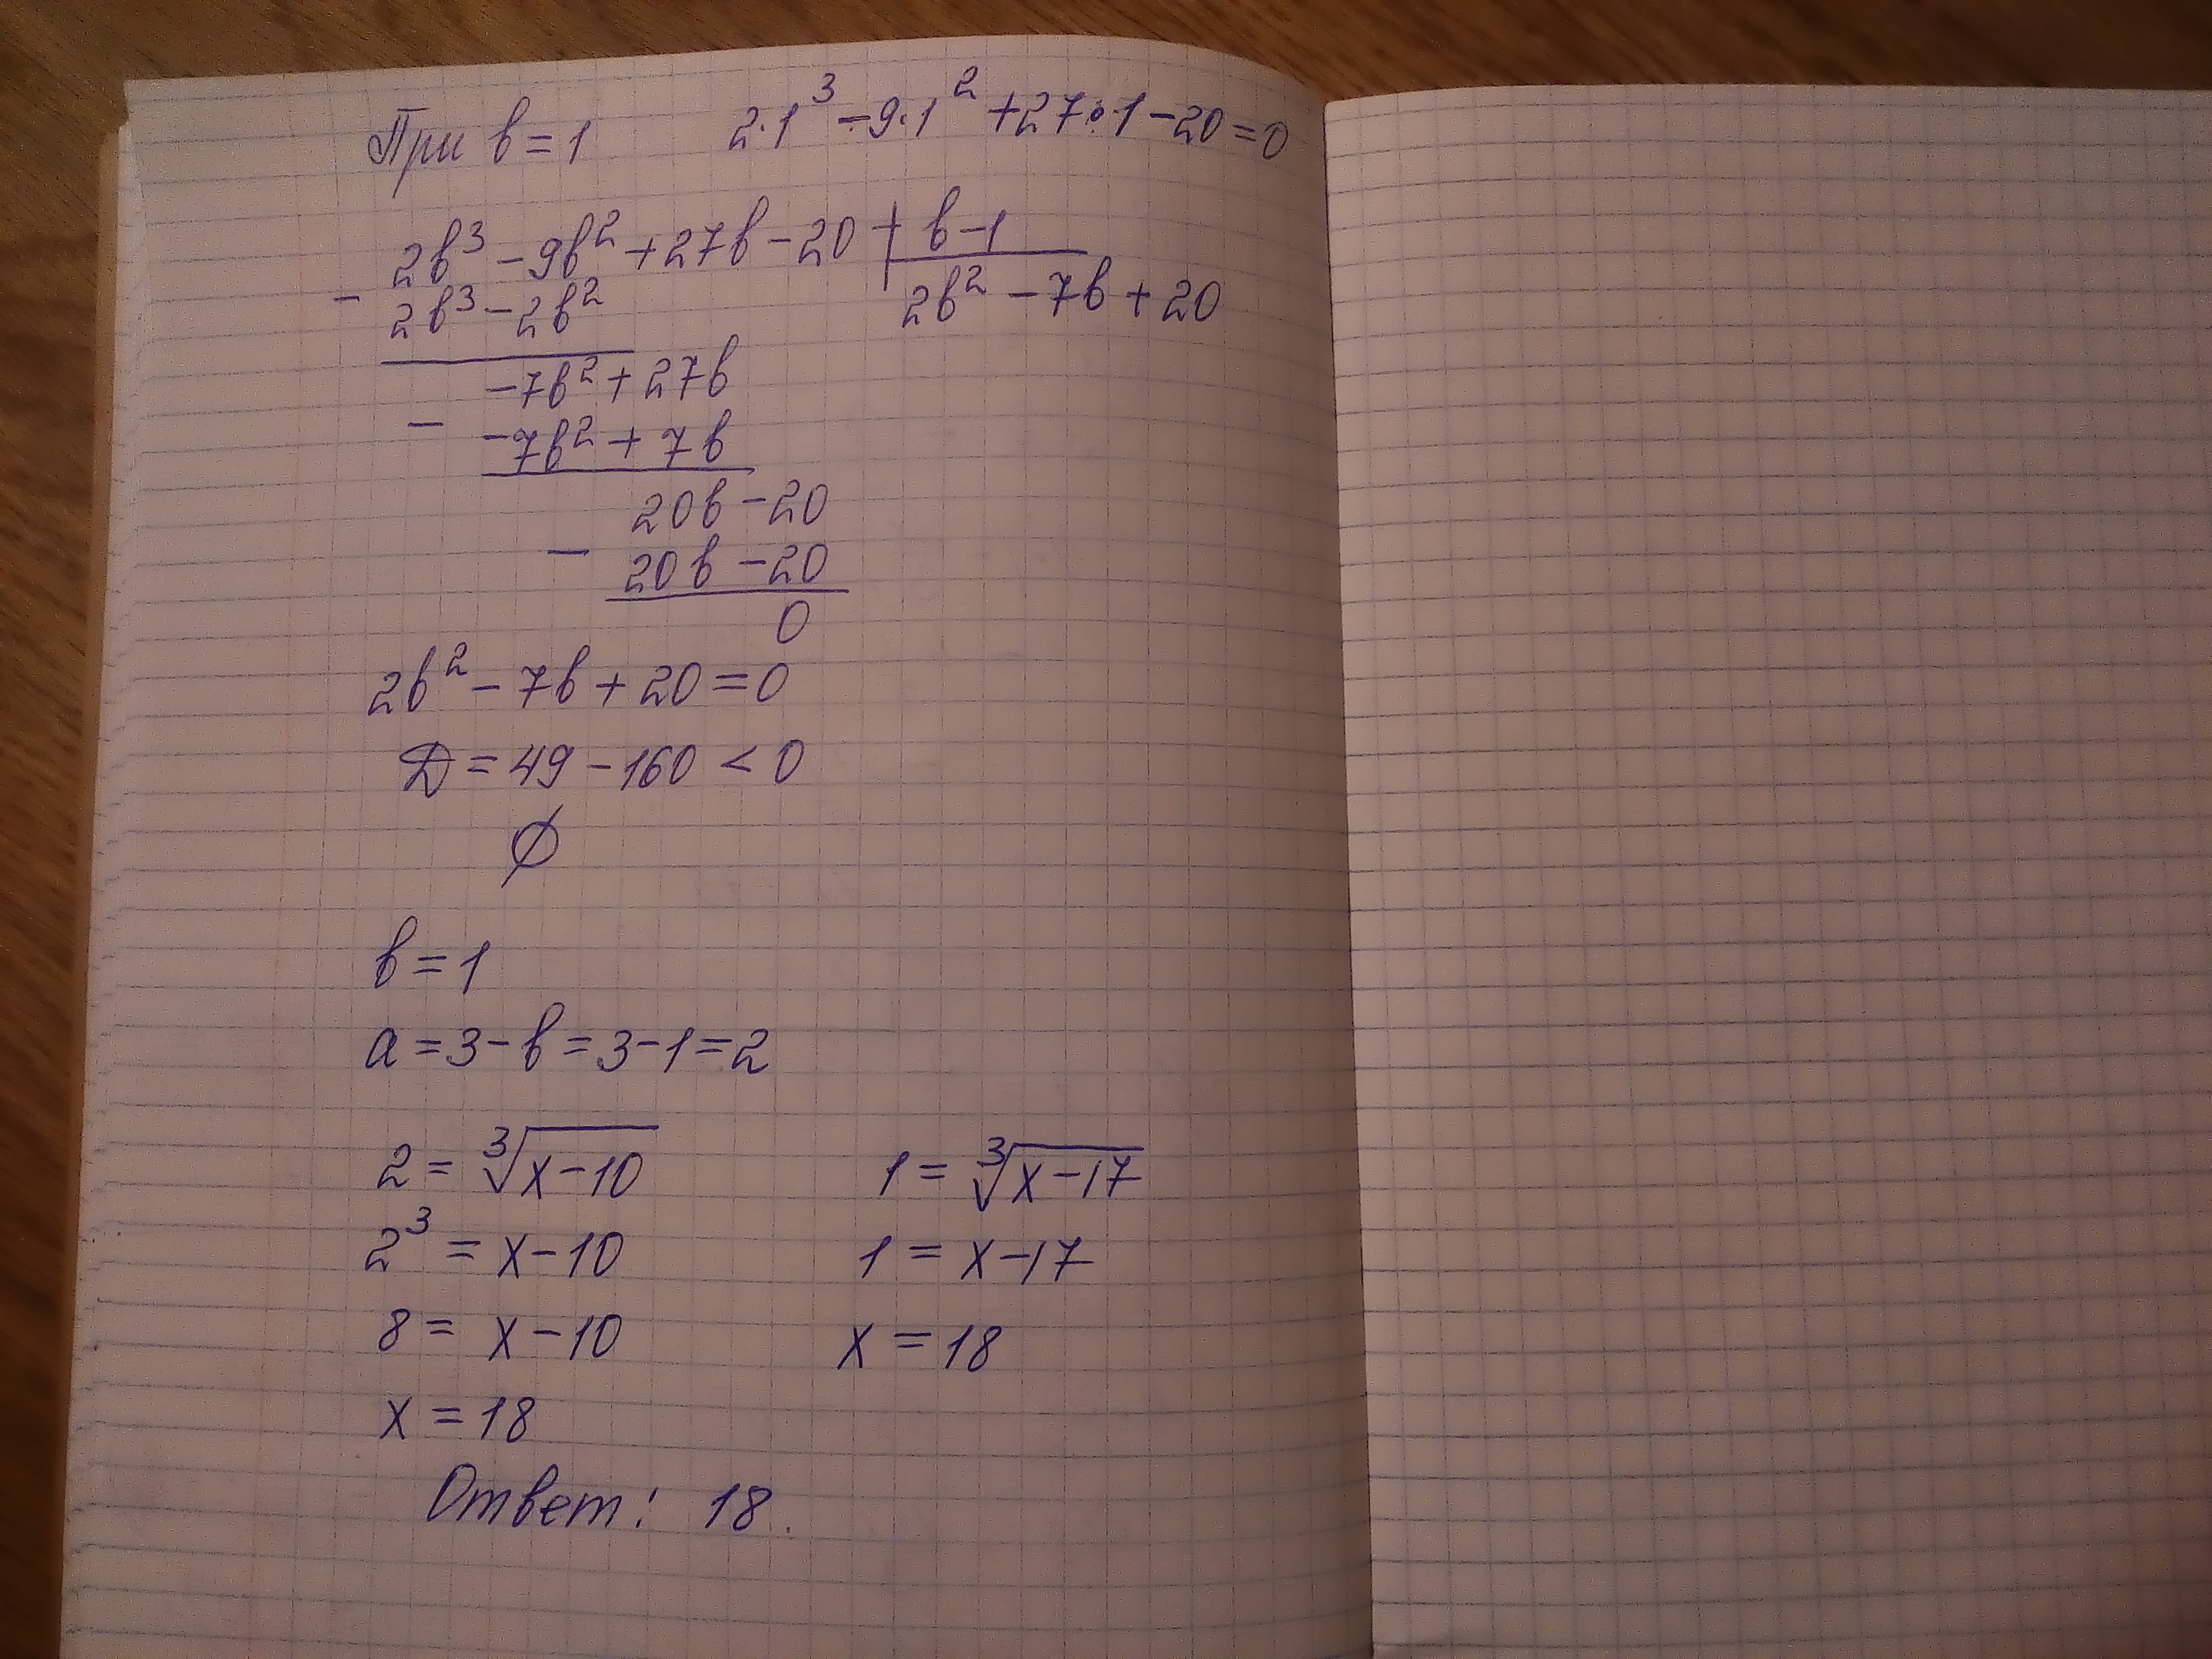 При b = 1 2·1³ - 9·1² + 27·1 - 20 = 0
2b³ - 9b² + 27b - 20 | b - 1
- 2b³ - 2b² 2b² - 7b + 20
-7b² + 27b
- -7b² + 7b
20b - 20
- 20b - 20
0
2b² - 7b + 20 = 0
Д = 49 - 160 < 0
∅
b = 1
a = 3 - b = 3 - 1 = 2
2 = ∛(x - 10) 1 = ∛(x - 17)
2³ = x - 10 1 = x - 17
8 = x - 10 x = 18
x = 18
Ответ: 18.